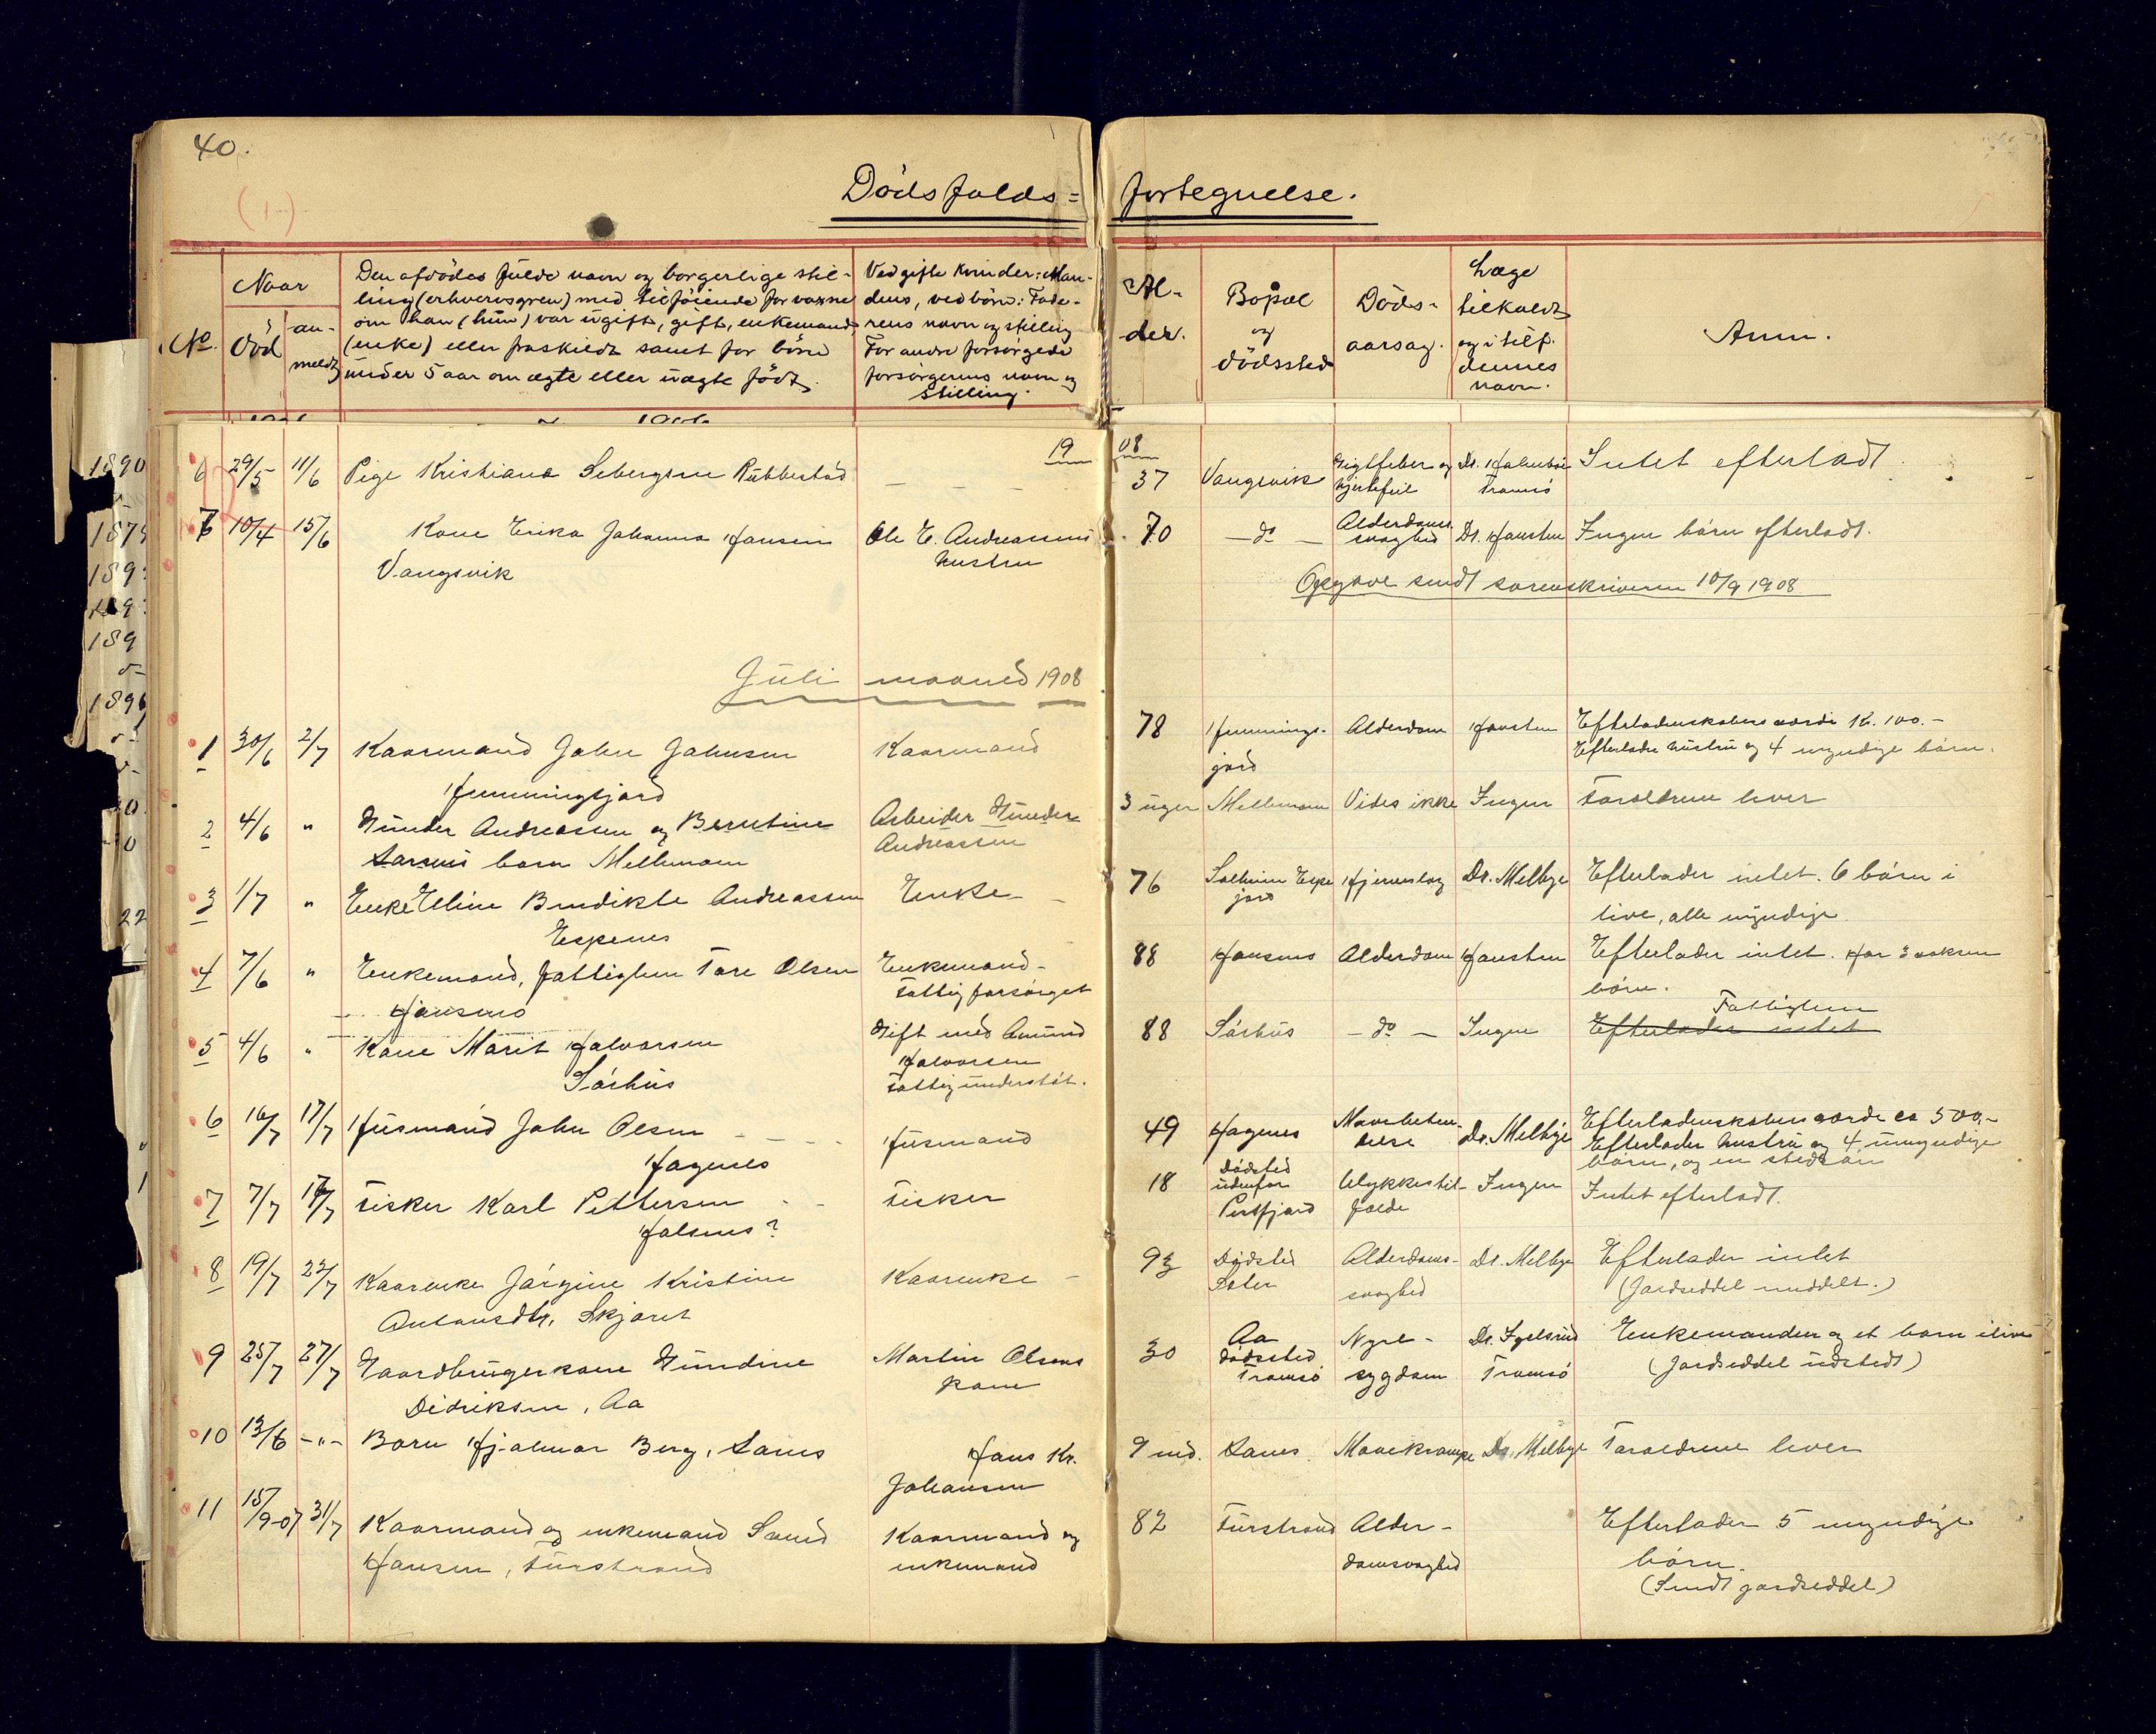 40.
Dödsfalds= fortegnelse.
No.
Naar
död
an-
meldt
Den afdödes fulde navn og borgerlige stil-
ling (erhvervsgren) med tilföiende for voxne
om han (hun) var ugift, gift, enkemand
(enke) eller fraskildt samt for börn
under 5 aar om ægte eller uægte född.
Ved gifte kvinder: Man-
dens, ved börn: Fade-
rens navn og stilling
For andre forsörgede
forsörgerens navn og
stilling.
Al-
der.
Bopæl
og
dödssted
Döds-
aarsag.
Læge
tilkaldt
og i tilf.
dennes
navn.
Anm.
19 08
6 29/5 11/6 Pige Kristiana Sebergsen Rubbestad — — — 37 Vangsvik Gigtfeber og Dr. Holmboe Intet efterladt
hjertefeil Tromsö
7 10/4 15/6 Kone Erika Johanna Hansen Ole E. Andreassens 70 — do — Alderdoms Dr. Hansten Ingen börn efterladt.
Vangsvik hustru svaghed
Opgave sendt sorenskriveren 10/9 1908
Juli maaned 1908
1 30/6 2/7 Kaarmand John Johnsen Kaarmand 78 Hemmings- Alderdom Hansten Efterladenskabens værdi Kr. 100.-
Hemmingsjord jord Efterlader hustru og 4 myndige börn.
2 4/6 " Gunder Andreassen og Berntine Arbeider Gunder 3 uger Mellemoen Vides ikke Ingen Foreldrene lever
Larsens barn Mellemoen Andreassen
3 1/7 " Enke Elline Bendikte Andreassen Enke — 76 Solheim Espe Hjerneslag Dr. Melbye Efterlader intet. 6 börn i
Espenes jord live, alle myndige
4 7/6 " Enkemand, fattiglem Tore Olsen Enkemand- 88 Hansmo Alderdom Hansten Efterlader intet. Har 3 voksne
Hansmo Fattigforsörget börn.
5 4/6 " Kone Marit Halvorsen Gift med Amund 88 Sörhus — do — Ingen Fattiglem
Sörhus Halvorsen Efterlader intet
Fattigunderstöt.
6 16/7 17/7 Husmand John Olsen Husmand 49 Hagenes Mavebeten- Dr. Melbye Efterladenskabens værdi ca 500.-
Hagenes delse Efterlader hustru og 4 umyndige
börn, og en stedsön
7 7/7 17/7 Fisker Karl Pettersen Fisker 18 Dödsted Ulykkestil- Ingen Intet efterladt.
udenfor
Persfjord fælde
8 19/7 22/7 Kaarenke Jörgine Kristine Kaarenke — 93 Dödsted Alderdoms- Dr. Melbye Efterlader intet
Antonsdtr. Skjæret svaghed (Jordseddel meddelt.)
9 25/7 27/7 Gaardbrugerkone Gundine Martin Olsens 30 Aa Nyre- Dr. Igelsrud Enkemanden og et barn ilive
Didriksen, Aa kone dödssted sygdom Tromsö (Jordseddel udstedt)
Tromsö
10 13/6 -"- Barn Hjalmar Berg, Lanes Hans Kr. 9 md. Lanes. Mavekrampe Dr. Melbye Foreldrene lever
Johansen
11 15/9-07 31/7 Kaarmand og enkemand Kaarmand og 82 Furstrand Alder- Efterlader 5 myndige
Hansen, Furstrand enkemand domsvaghed börn.
(Sendt jordseddel)
1890
1896
22